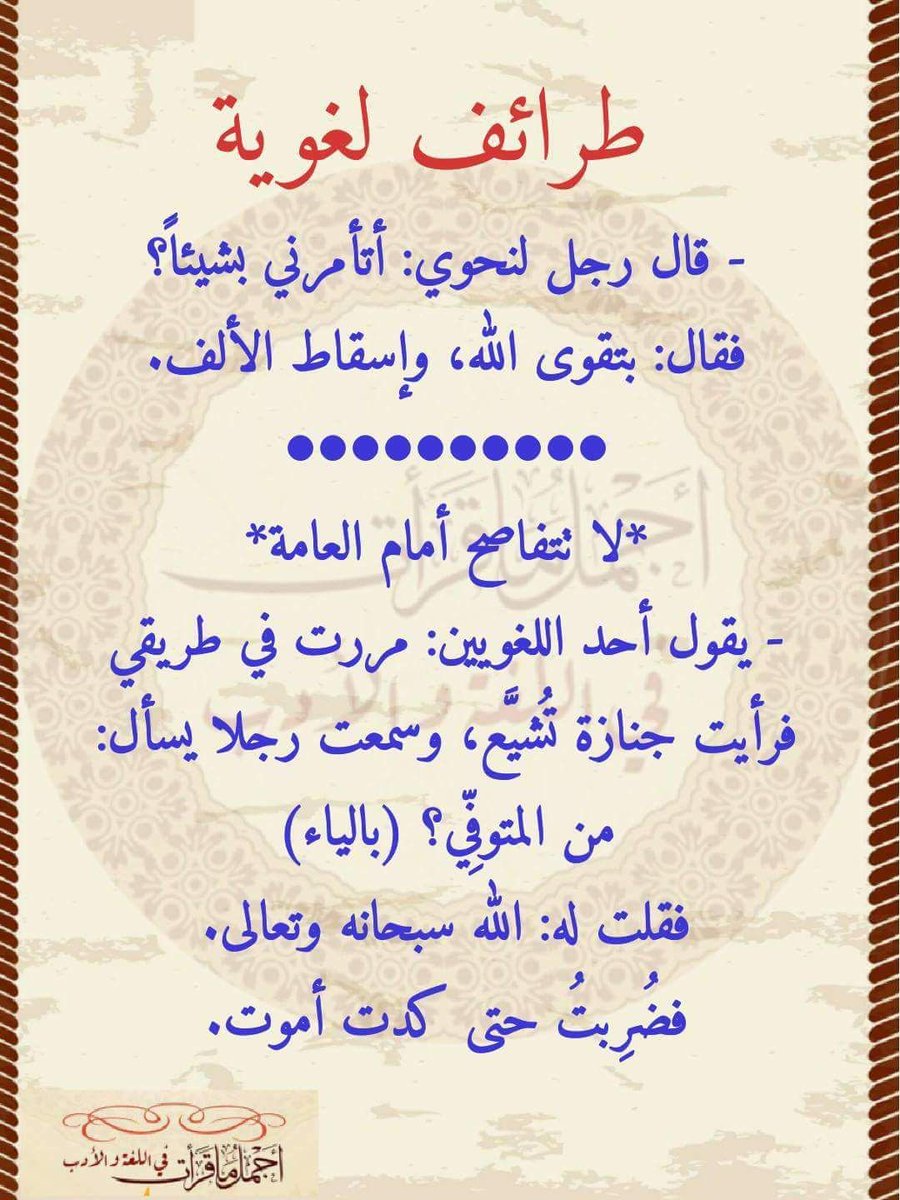 طرائف لغوية
- قال رجل لنحوي: أتأمرني بشيئاً؟
فقال: بتقوى الله، وإسقاط الألف.
●●●●●●●●●●
*لا تتفاصح أمام العامة*
- يقول أحد اللغويين: مررت في طريقي
فرأيت جنازة تُشيَّع، وسمعت رجلا يسأل:
من المتوفِّي؟ (بالياء)
فقلت له: الله سبحانه وتعالى.
فضُرِبتُ حتى كدت أموت.
أجمل ما قرأت في اللغة والأدب
أجمل ما قرأت في اللغة والأدب